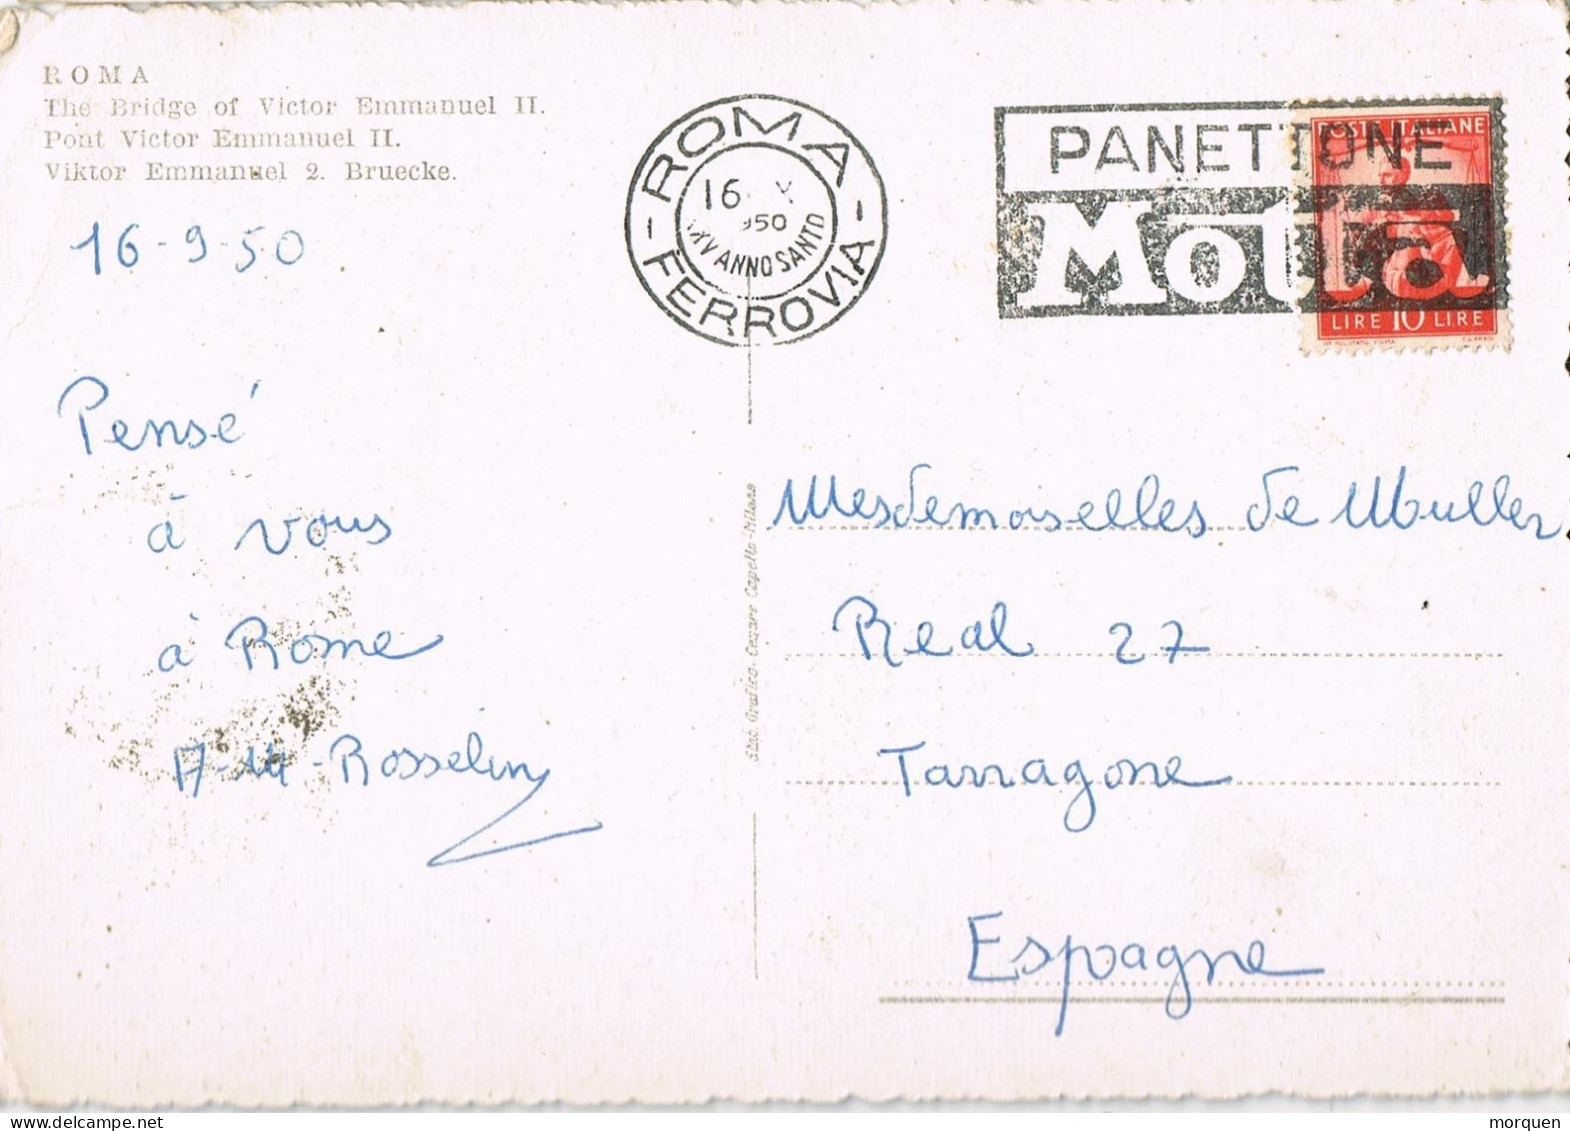 ROMA
The Bridge of Victor Emmanuel II.
Pont Victor Emmanuel II.
Viktor Emmanuel 2. Bruecke.
16-9-50
ROMA
16 X
950
XXV ANNO SANTO
- FERROVIA -
PANETTONE
Motta
POSTE ITALIANE
LIRE 10 LIRE
Pensé
à vous
à Rome
A-M-Rosselin
Stab. Grafico Cesare Capello-Milano
Mesdemoiselles de Muller
Real 27
Tarragone
Espagne
morquen